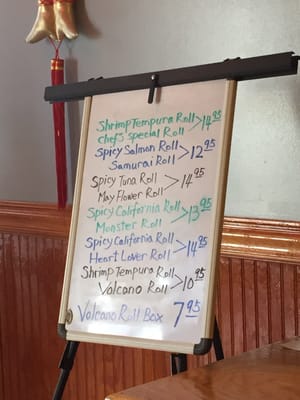 Shrimp Tempura Roll > 14 95
Chef's Special Roll
Spicy Salmon Roll > 12 95
Samurai Roll
Spicy Tuna Roll > 14 95
May Flower Roll
Spicy California Roll > 13 95
Monster Roll
Spicy California Roll > 14 95
Heart Lover Roll
Shrimp Tempura Roll > 10 95
Volcano Roll
Volcano Roll Box 7 95